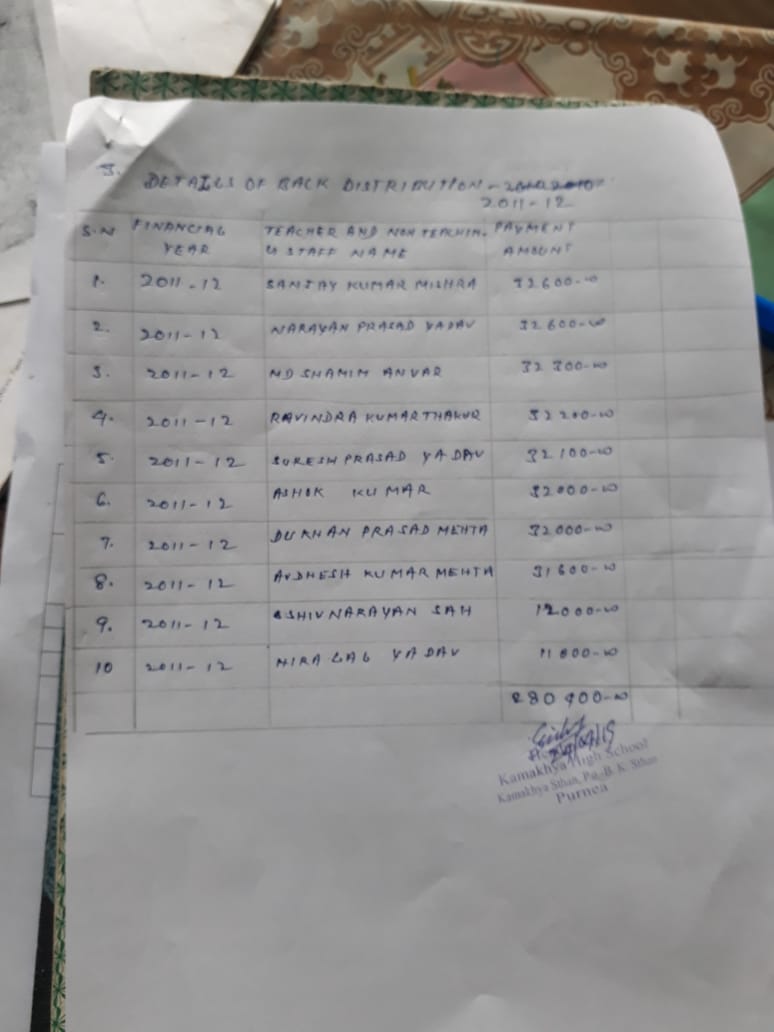 3. DETAILS OF BACK DISTRIBUTION -
2011-12
S.N FINANCIAL YEAR TEACHER AND NON TEACHING STAFF NAME PAYMENT AMOUNT
1. 2011-12 SANJAY KUMAR MISHRA 32600-00
2. 2011-12 NARAYAN PRASAD YADAV 32600-00
3. 2011-12 MD SHAMIM ANVAR 32300-00
4. 2011-12 RAVINDRA KUMAR THAKUR 32200-00
5. 2011-12 SURESH PRASAD YADAV 32100-00
6. 2011-12 ASHOK KUMAR 32000-00
7. 2011-12 DUKHAN PRASAD MEHTA 32000-00
8. 2011-12 AVDHESH KUMAR MEHTA 31600-00
9. 2011-12 SHIVNARAYAN SAH 12000-00
10 2011-12 HIRA LAL YADAV 11000-00
280400-00
Kamakhya High School
Kamakhya Sthan, B. K. Sthan
Purnea